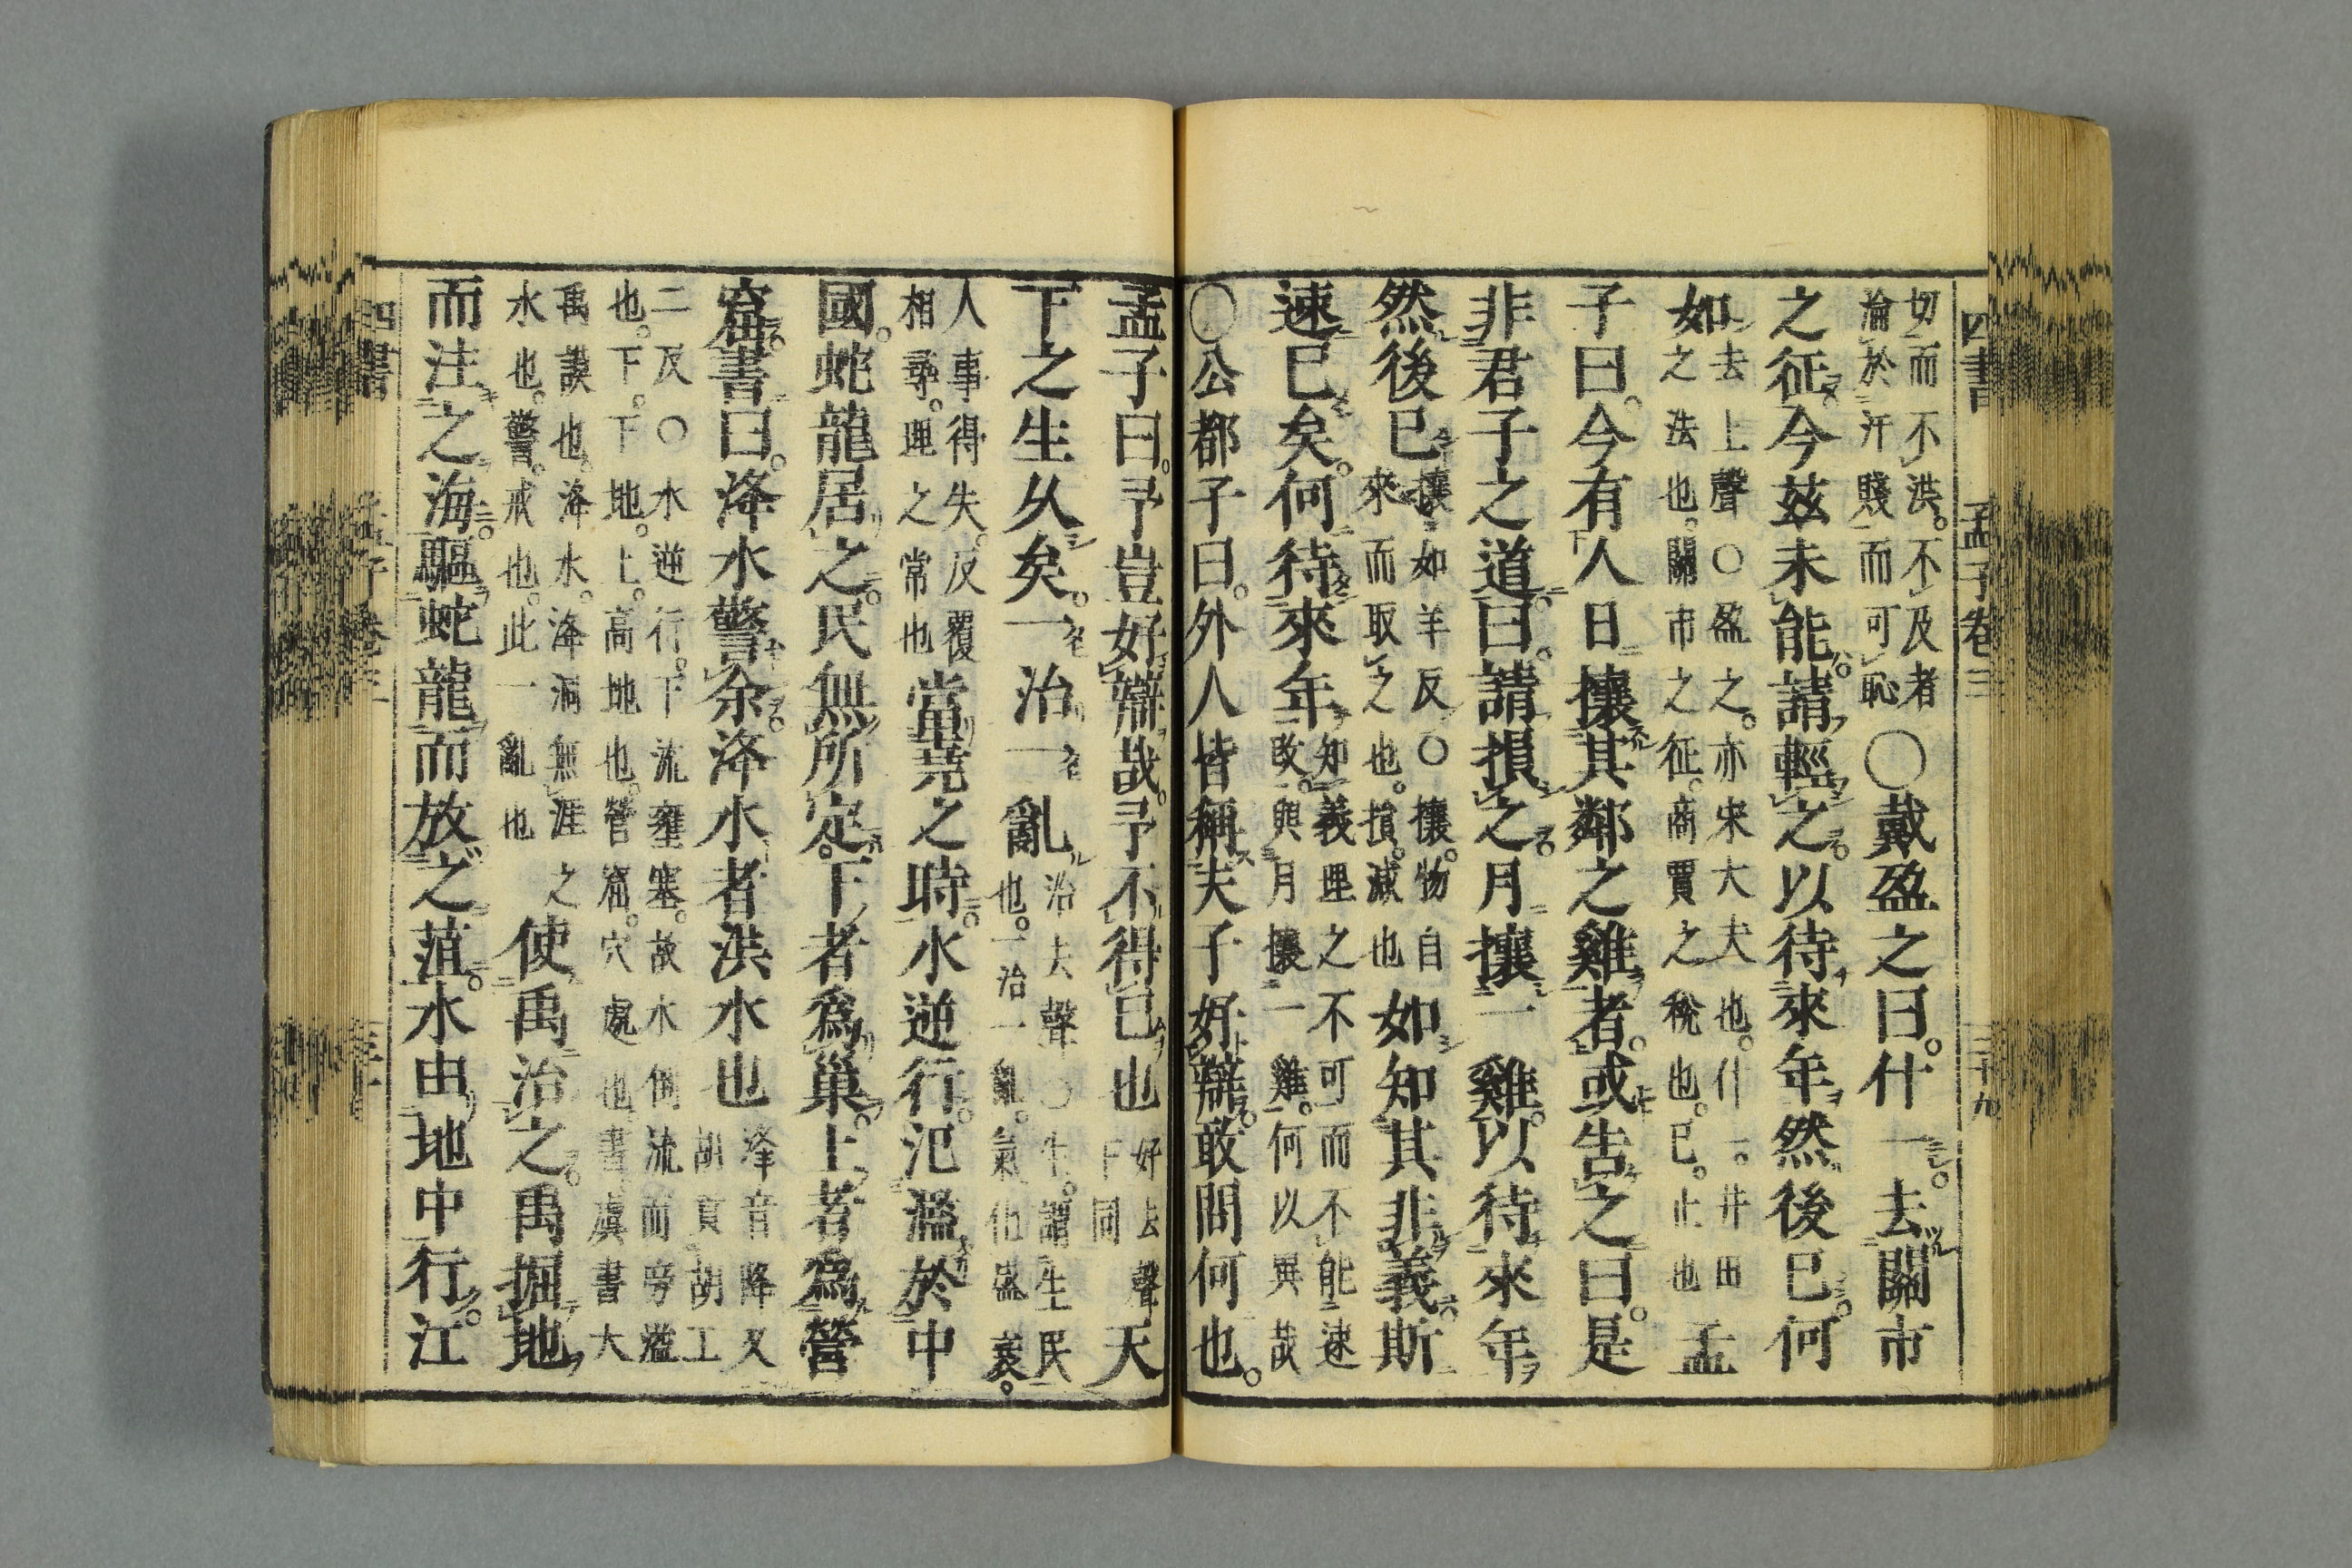 四書 孟子卷三 三十九
切而不洪。不及者
淪於汙賤而可恥
○戴盈之曰。什一。去關市
之征。今茲未能。請輕之。以待來年。然後已。何
如
去上聲○盈之。亦宋大夫也。什一。井田
之法也。關市之征。商賈之稅也。已。止也
孟
子曰。今有人日攘其鄰之雞者。或告之曰。是
非君子之道。曰。請損之。月攘一雞。以待來年。
然後已
攘如羊反○攘。物自
來而取之也。損。減也
如知其非義。斯
速已矣。何待來年。
知義理之不可而不能速
改。與月攘一雞。何以異哉
○公都子曰。外人皆稱夫子好辯。敢問何也。
孟子曰。予豈好辯哉。予不得已也
好去聲
下同
天
下之生久矣。一治一亂
治去聲○生。謂生民
也。一治一亂。氣化盛衰。
人事得失。反覆
相尋。理之常也
當堯之時。水逆行。氾濫於中
國。蛇龍居之。民無所定。下者爲巢。上者爲營
窟。書曰。洚水警余。洚水者洪水也
洚音降又
胡貢。胡工
二反○水逆行。下流壅塞。故水倒流而旁溢
也。下。下地。上。高地也。營窟。穴處也。書虞書大
禹謨也。洚水。洚洞無涯之
水也。警。戒也。此一亂也
使禹治之。禹掘地
而注之海。驅蛇龍而放之菹。水由地中行。江
四書